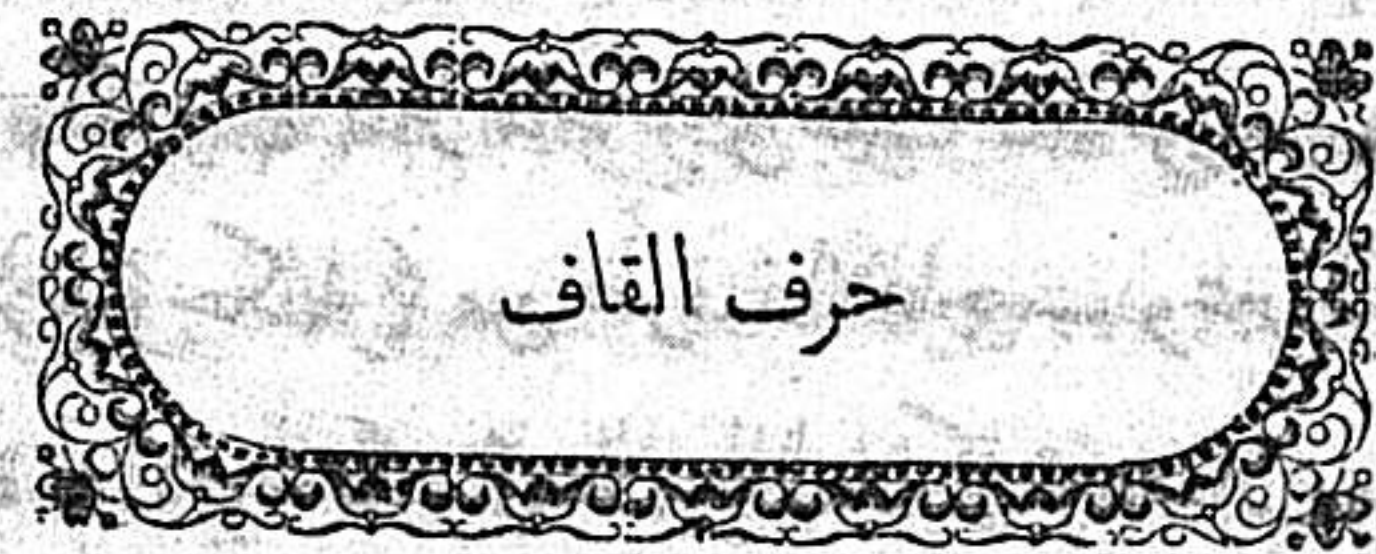 حرف القاف